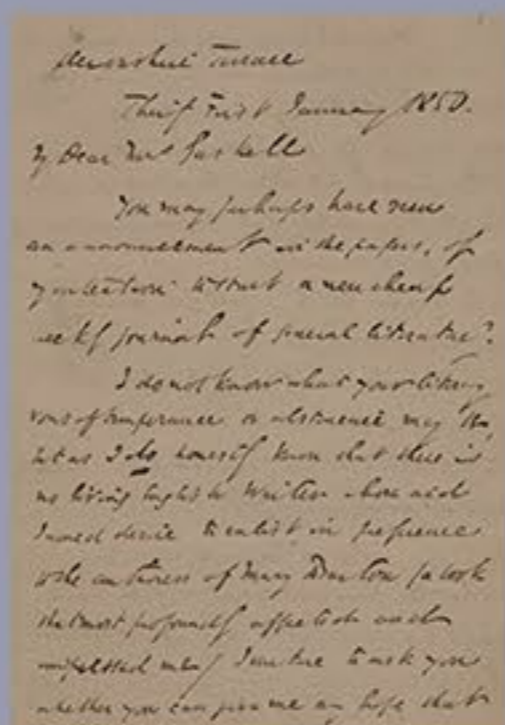 Devonshire Terrace
Thirty First January 1850.
My Dear Mrs Gaskell
You may perhaps have seen
an announcement in the papers, of
my intention to start a new cheap
weekly journal of general literature?
I do not know what your literary
vows of temperance or abstinence may be,
but as I do honestly know that there is
no living English Writer whose aid
I would desire to enlist, in preference
to the authoress of Mary Barton (a book
that most profoundly affected and
impressed me) I venture to ask you
whether you can give me any hope that